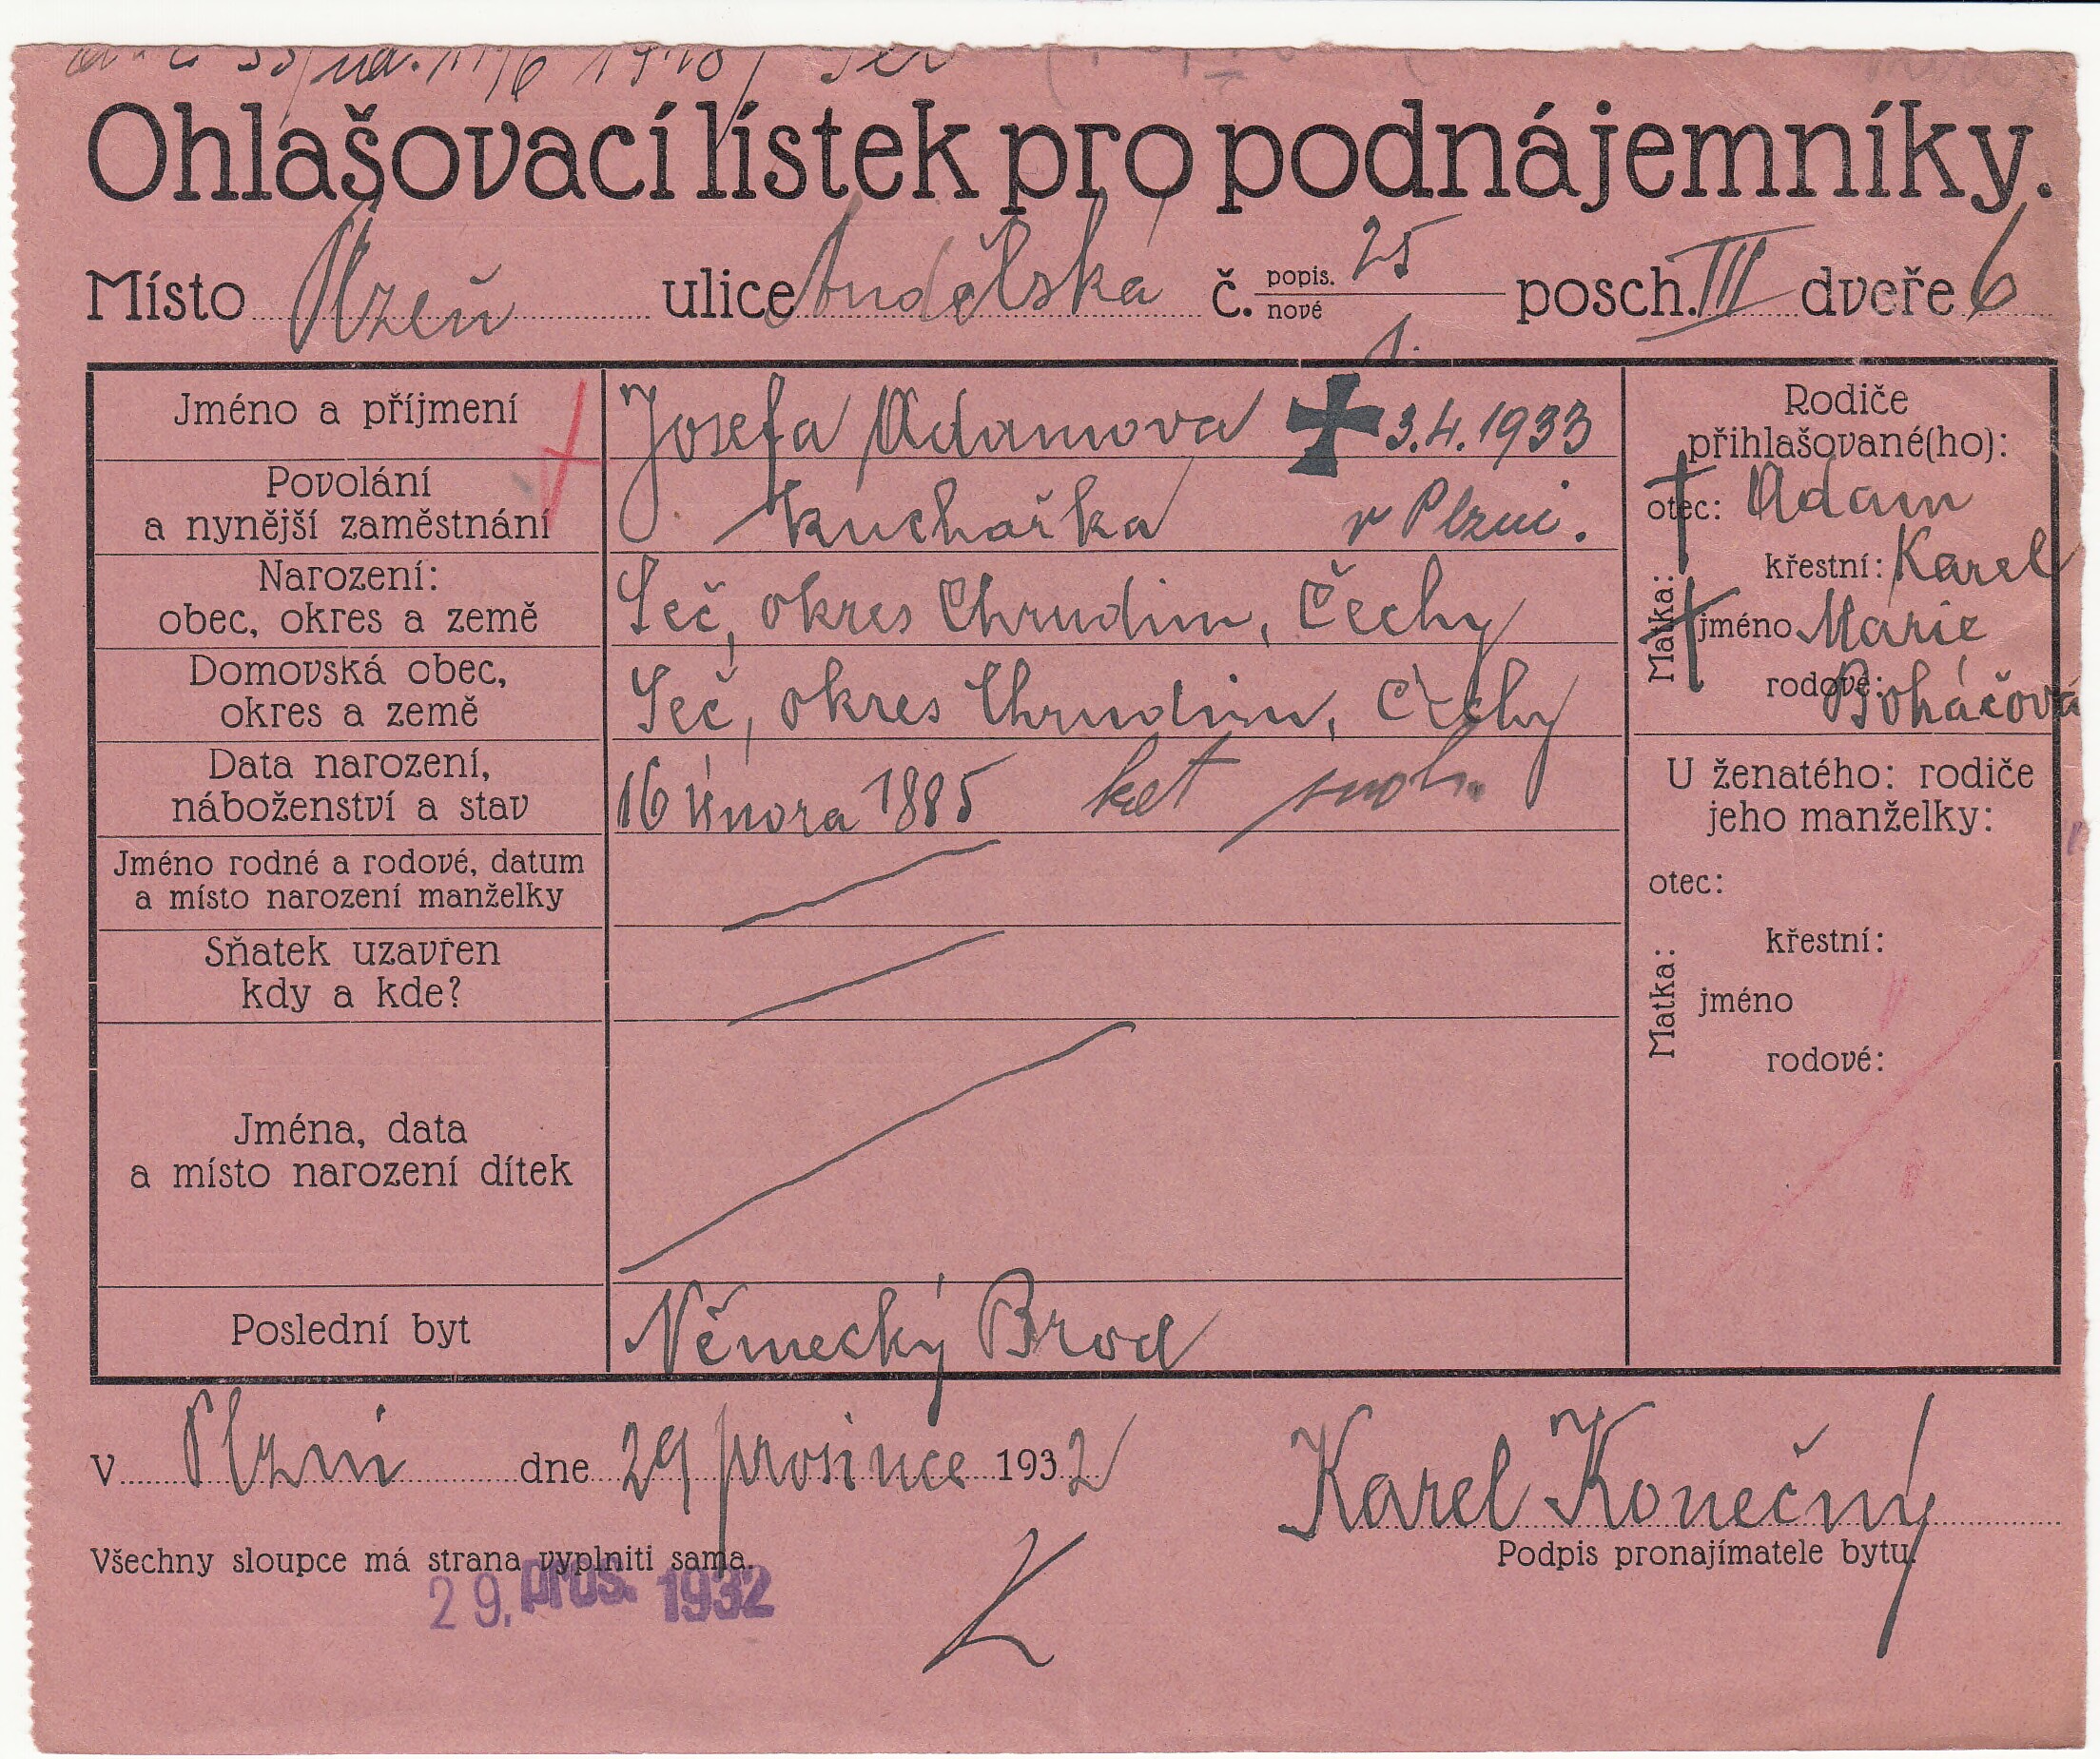 Ohlašovací lístek pro podnájemníky.
Místo Plzeň ulice Andělská č. popis. 25 nové 1. posch. III dveře 6
Jméno a příjmení Josefa Adamova 3.4.1933
Povolání
a nynější zaměstnání kuchařka v Plzni.
Narození:
obec, okres a země Seč, okres Chrudim, Čechy
Domovská obec,
okres a země Seč, okres Chrudim, Čechy
Data narození,
náboženství a stav 16 února 1885 kat svob.
Jméno rodné a rodové, datum
a místo narození manželky
Sňatek uzavřen
kdy a kde?
Jména, data
a místo narození dítek
Poslední byt Německý Brod
Rodiče
přihlašované(ho):
otec: Adam
křestní: Karel
Matka:
jméno Marie
rodové: Boháčová
U ženatého: rodiče
jeho manželky:
otec:
křestní:
Matka:
jméno
rodové:
V Plzni dne 29 prosince 1932 Karel Konečný
Všechny sloupce má strana vyplniti sama. Podpis pronajímatele bytu.
29. pros. 1932